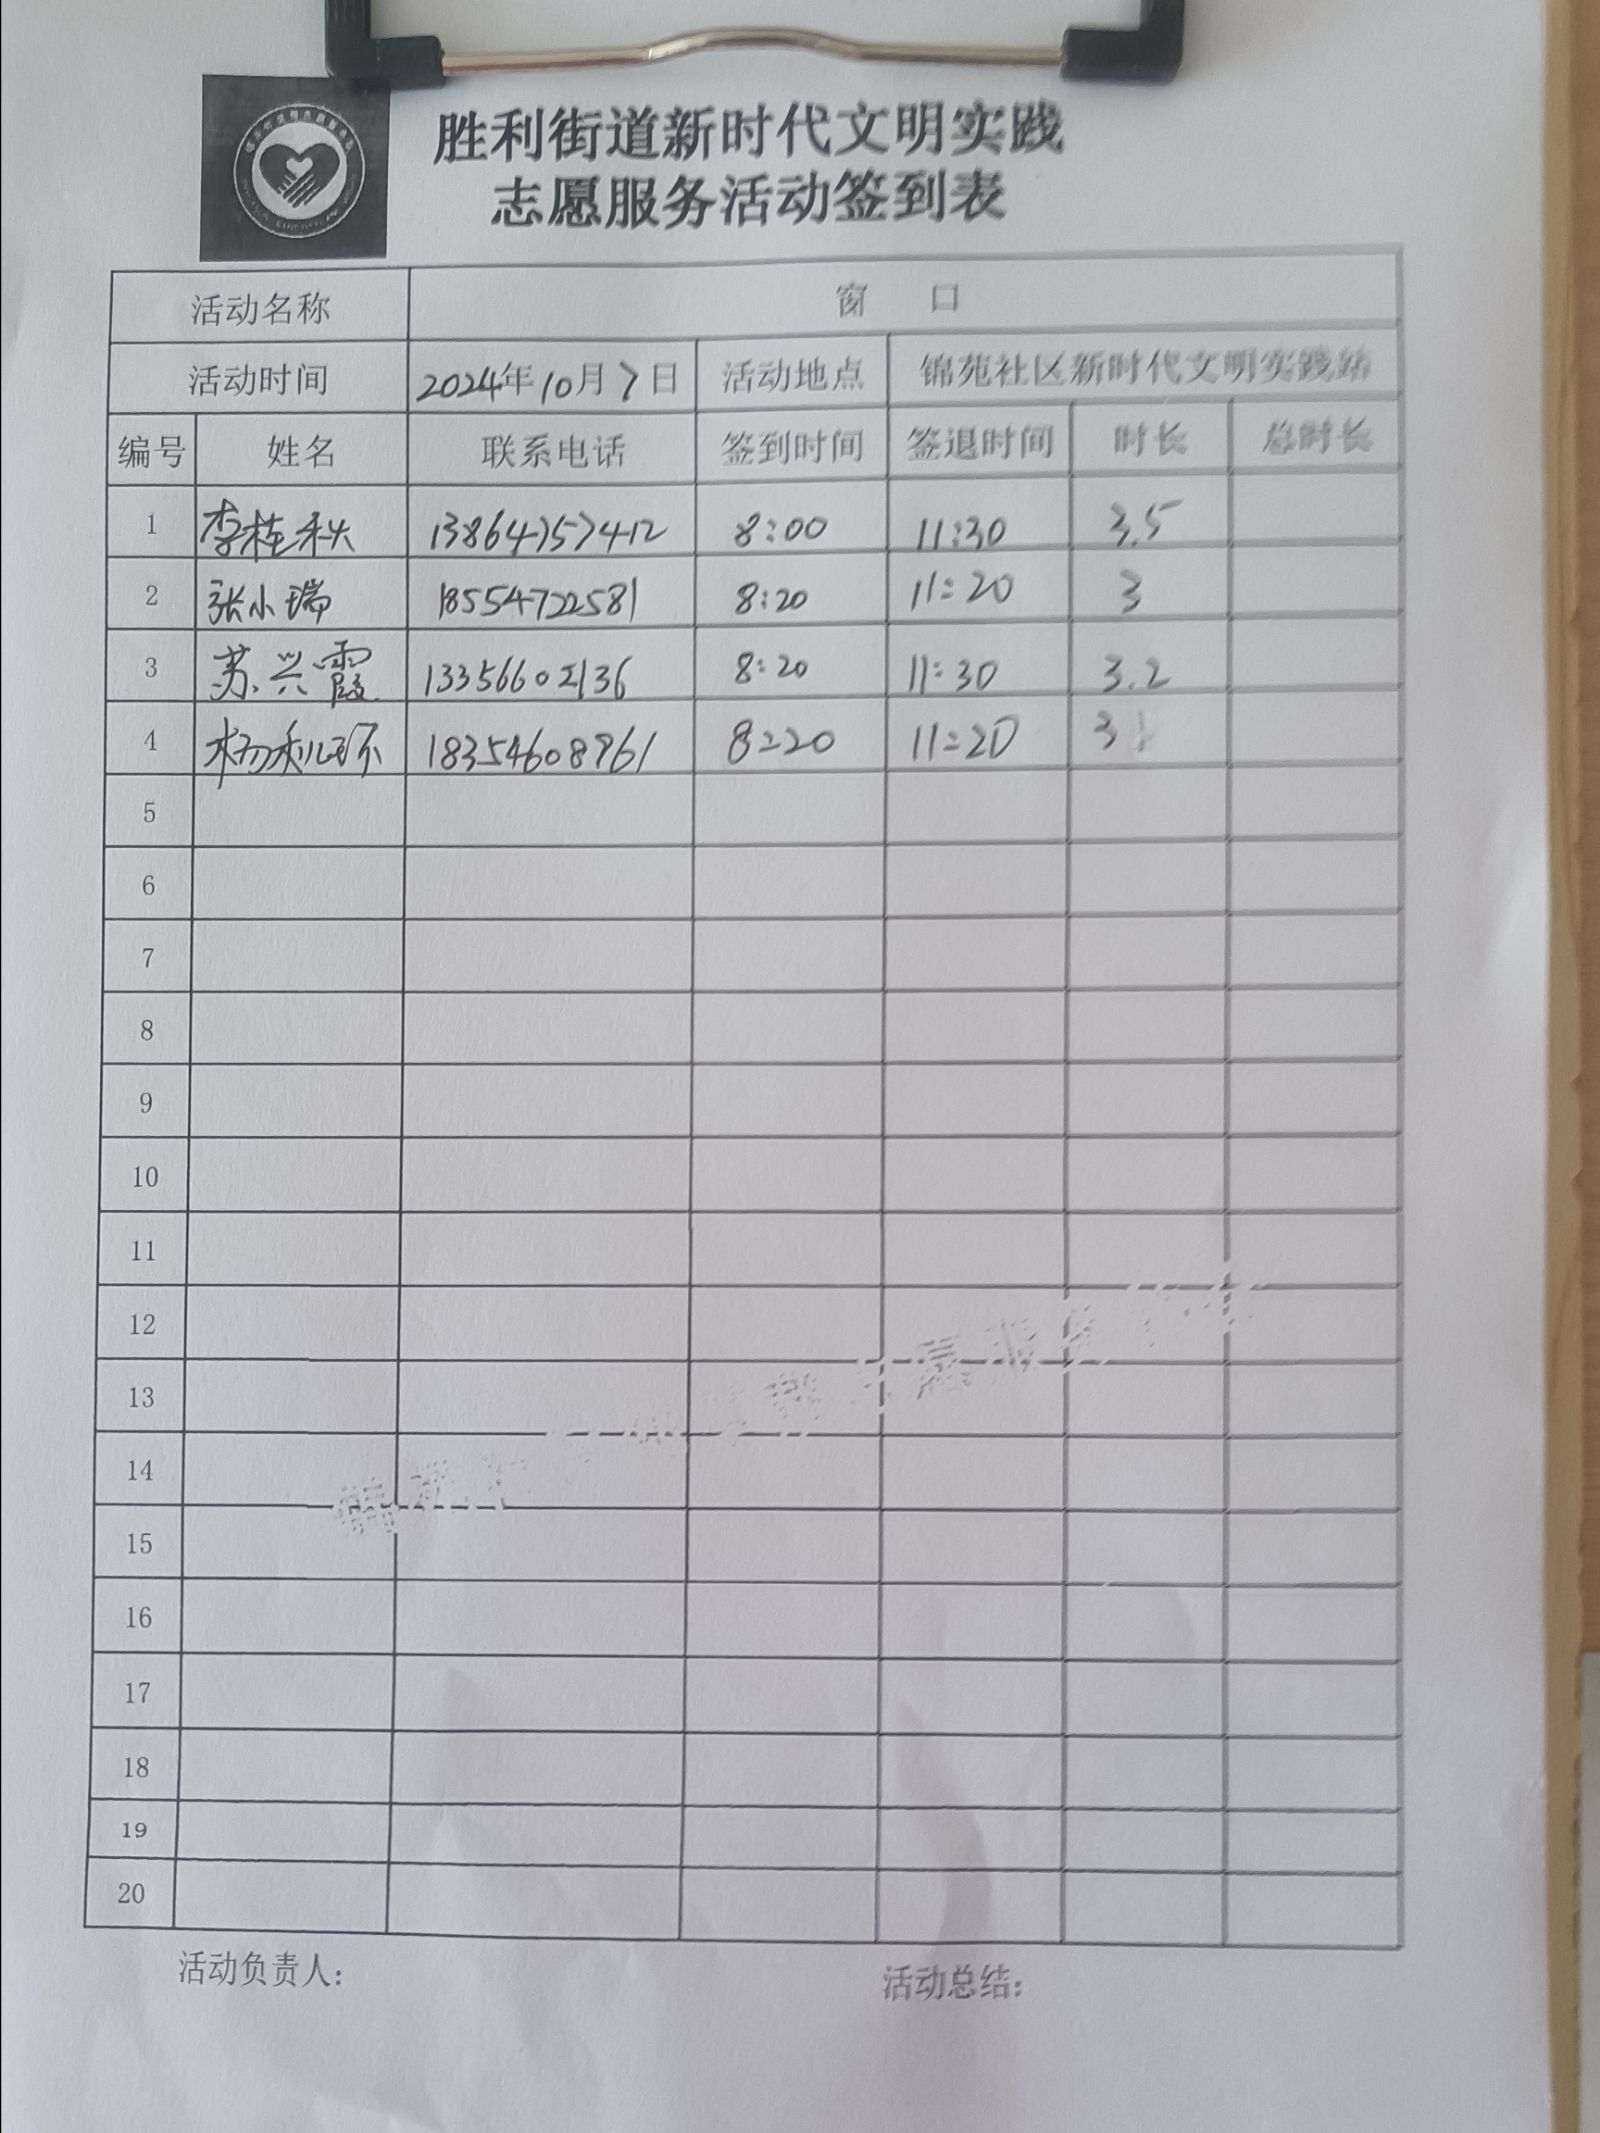 胜利街道新时代文明实践
志愿服务活动签到表
活动名称 窗 口
活动时间 2024年10月7日 活动地点 锦苑社区新时代文明实践站
编号 姓名 联系电话 签到时间 签退时间 时长 总时长
1 李桂秋 13864757412 8:00 11:30 3.5
2 张小瑞 18554722581 8:20 11:20 3
3 苏兴霞 13356602136 8:20 11:30 3.2
4 杨利环 18354608961 8:20 11:20 3
5
6
7
8
9
10
11
12
13
14
15
16
17
18
19
20
活动负责人: 活动总结: